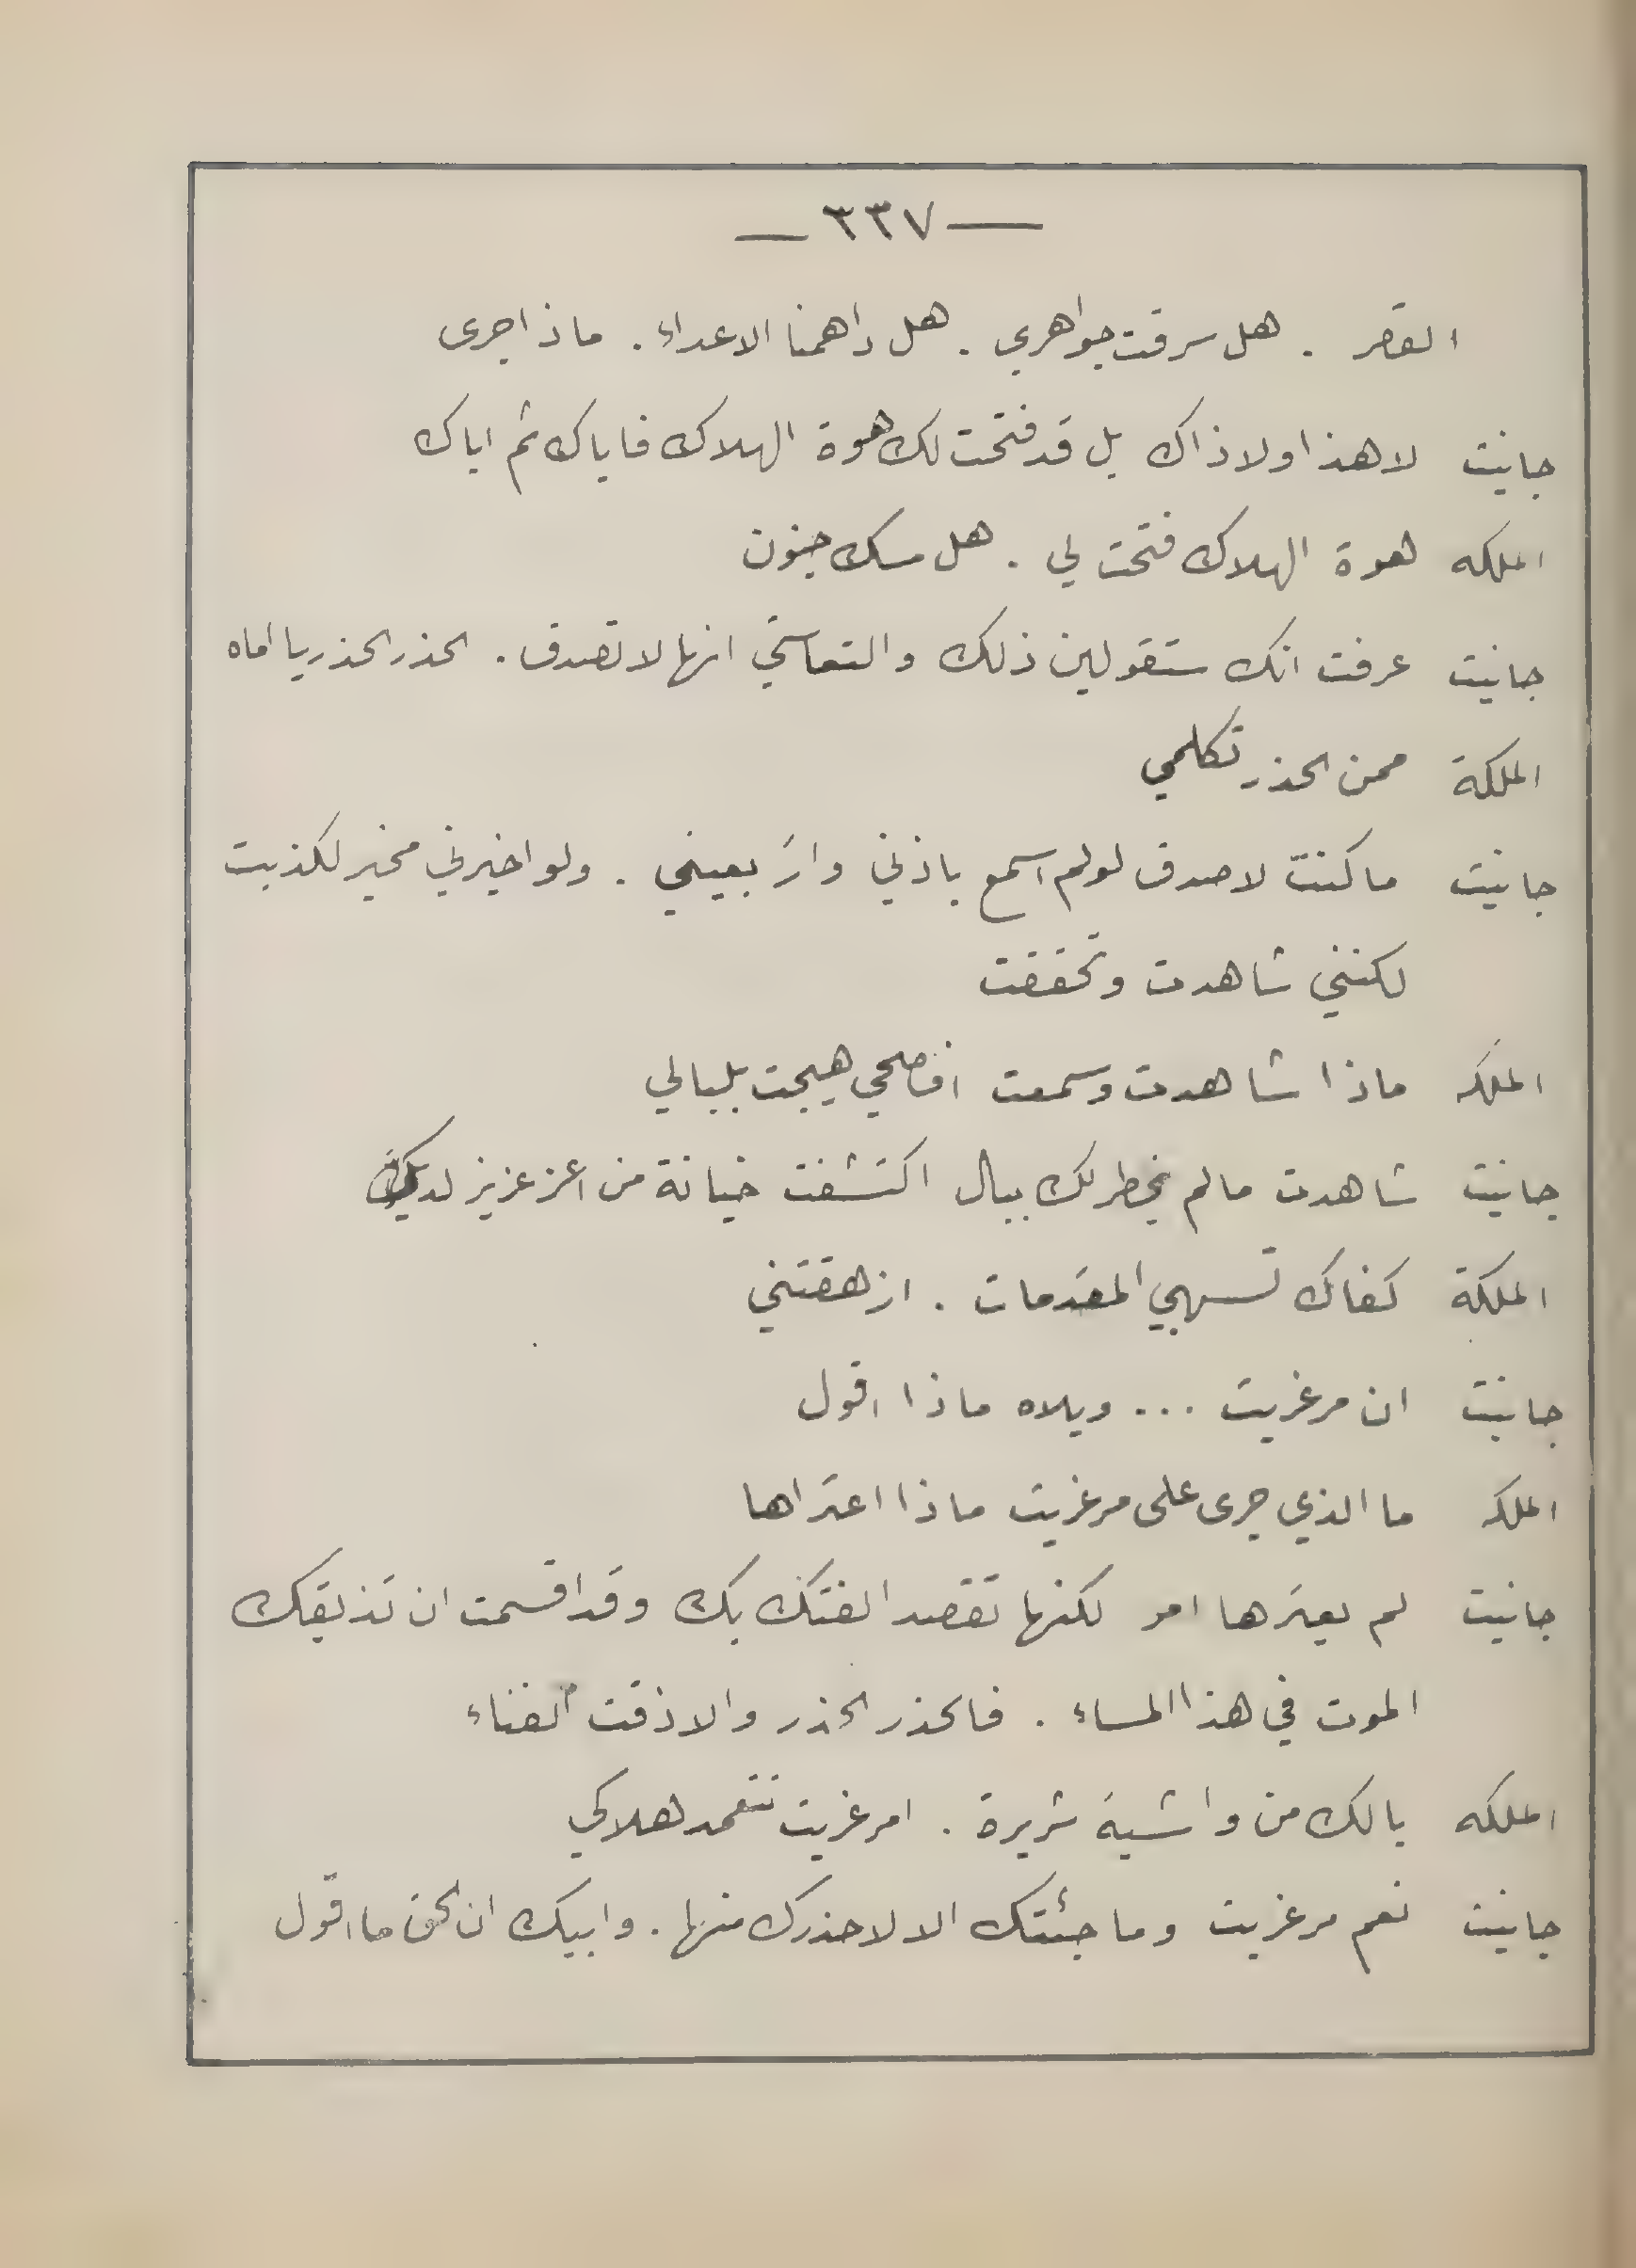 — ٣٣٧ —
القصر . هل سرقت جواهري . هل داهمنا الاعداء . ماذا جرى
جانيت لا هذا ولا ذاك بل قد فتحت لك هوة الهلاك فاياك ثم اياك
الملكه هوة الهلاك فتحت لي . هل مسك جنون
جانيت عرفت انك ستقولين ذلك والتعاستي انها لا تصدق . الحذر الحذر يا اماه
الملكة ممن الحذر تكلمي
جانيت ما كنت لاصدق لو لم اسمع باذني وارَ بعيني . ولو اخبرني مخبر لكذبت
لكنني شاهدت وتحققت
الملكه ماذا شاهدت وسمعت افصحي هيجت بلبالي
جانيت شاهدت مالم يخطر لك ببال اكتشفت خيانة من اعز عزيز لديك
الملكة كفاك تسهبي المقدمات . ازهقتني
جانيت ان مرغريت ... ويلاه ماذا اقول
الملكه ما الذي جرى على مرغريت ماذا اعتراها
جانيت لم يعترها امر لكنها تقصد الفتك بك وقد اقسمت ان تذيقك
الموت في هذا المساء . فالحذر الحذر والا ذقت الفناء
الملكه يا لك من واشية شريرة . امرغريت تتعمد هلاكي
جانيت نعم مرغريت وما جئتك الا لاحذرك منها . وابيك ان الحق ما اقول